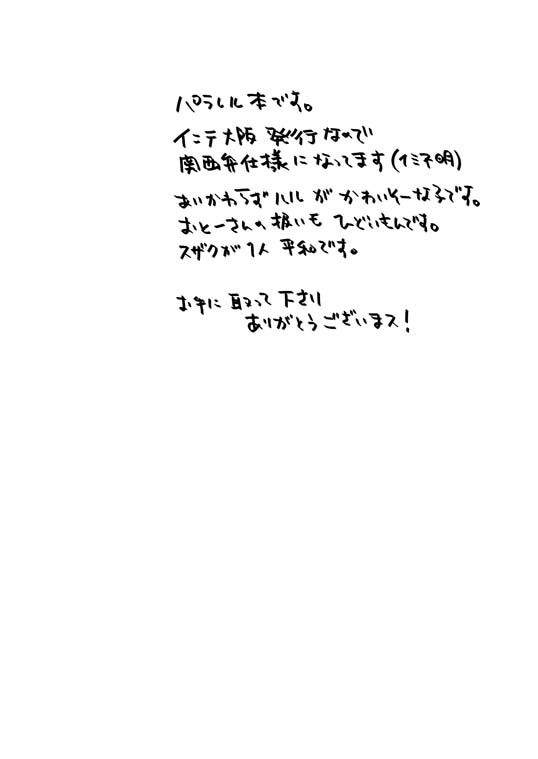 パラレル本です。
インテ大阪 発行なので
関西弁仕様になってます(イミ不明)
あいかわらずルルがかわいそーな子です。
おとーさんの扱いもひどいもんです。
スザクが1人平和です。
お手に取って下さり
ありがとうございまス!